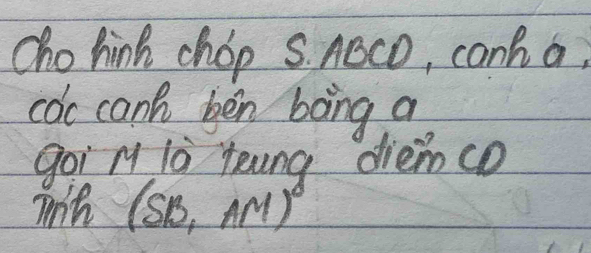 Cho hình chóp S.ABCD, cạnh a,
các cạnh bên bằng a
gọi M là trung điểm CD
Tính (SB, AM)